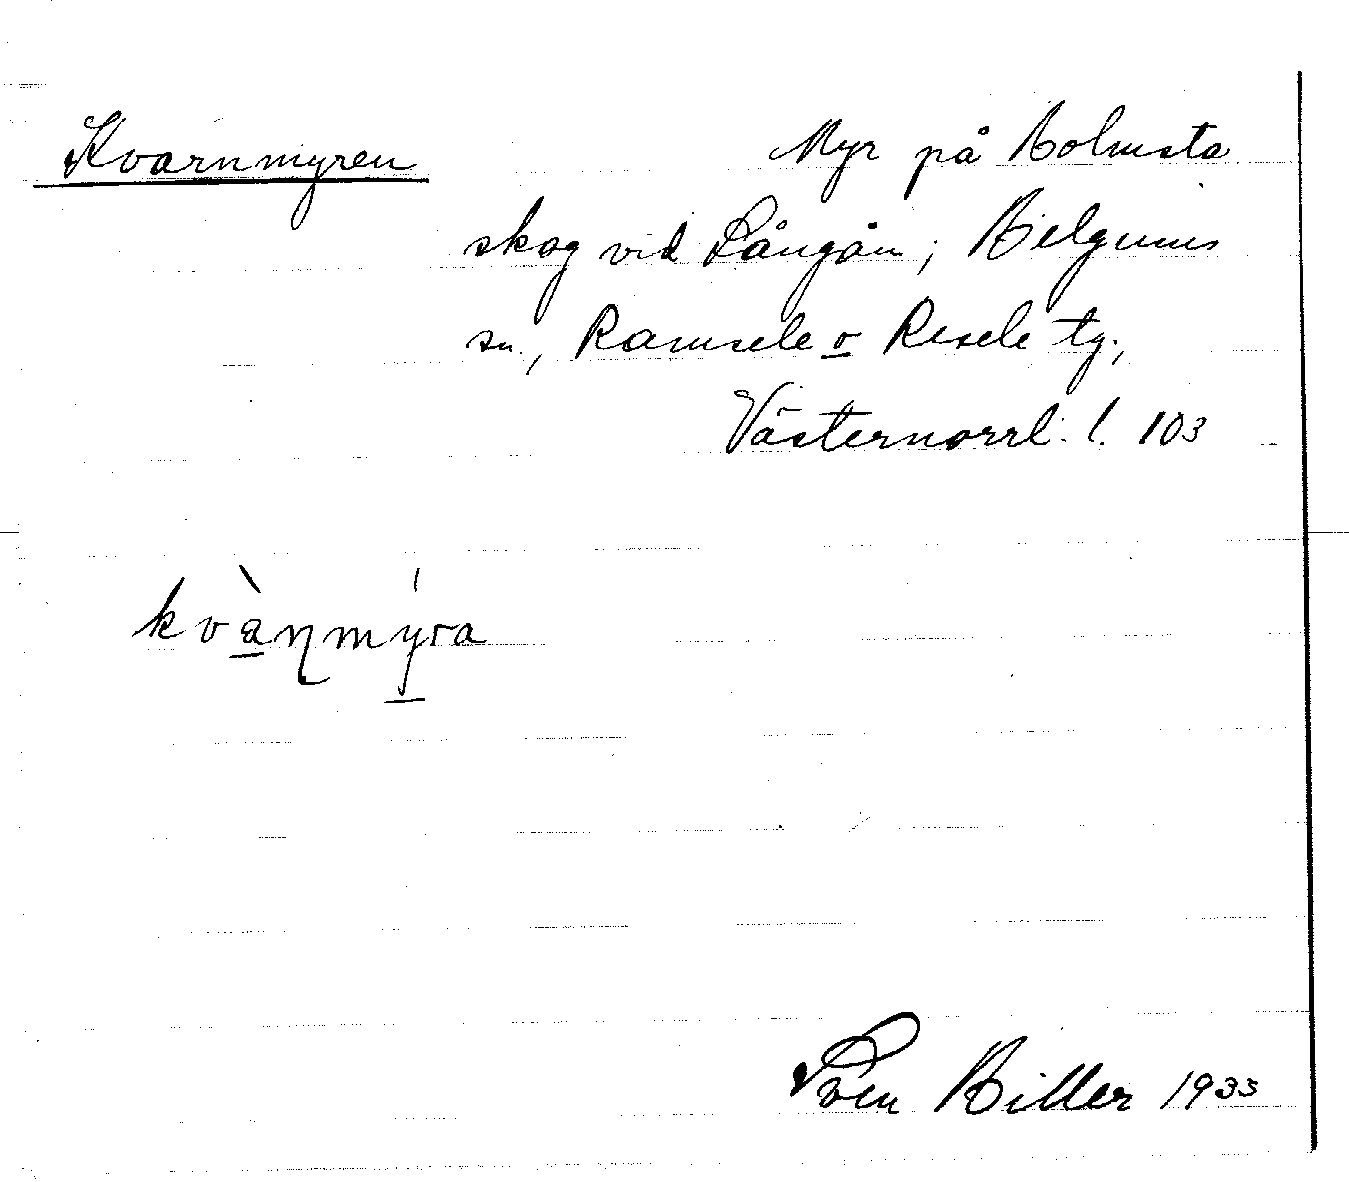 Kvarnmyren Myr på Holmsta
skog vid Långån; Helgums
sn., Ramsele o Resele tg.,
Västernorrl. l. 103
kvàṇmýra
Sven Hiller 1933